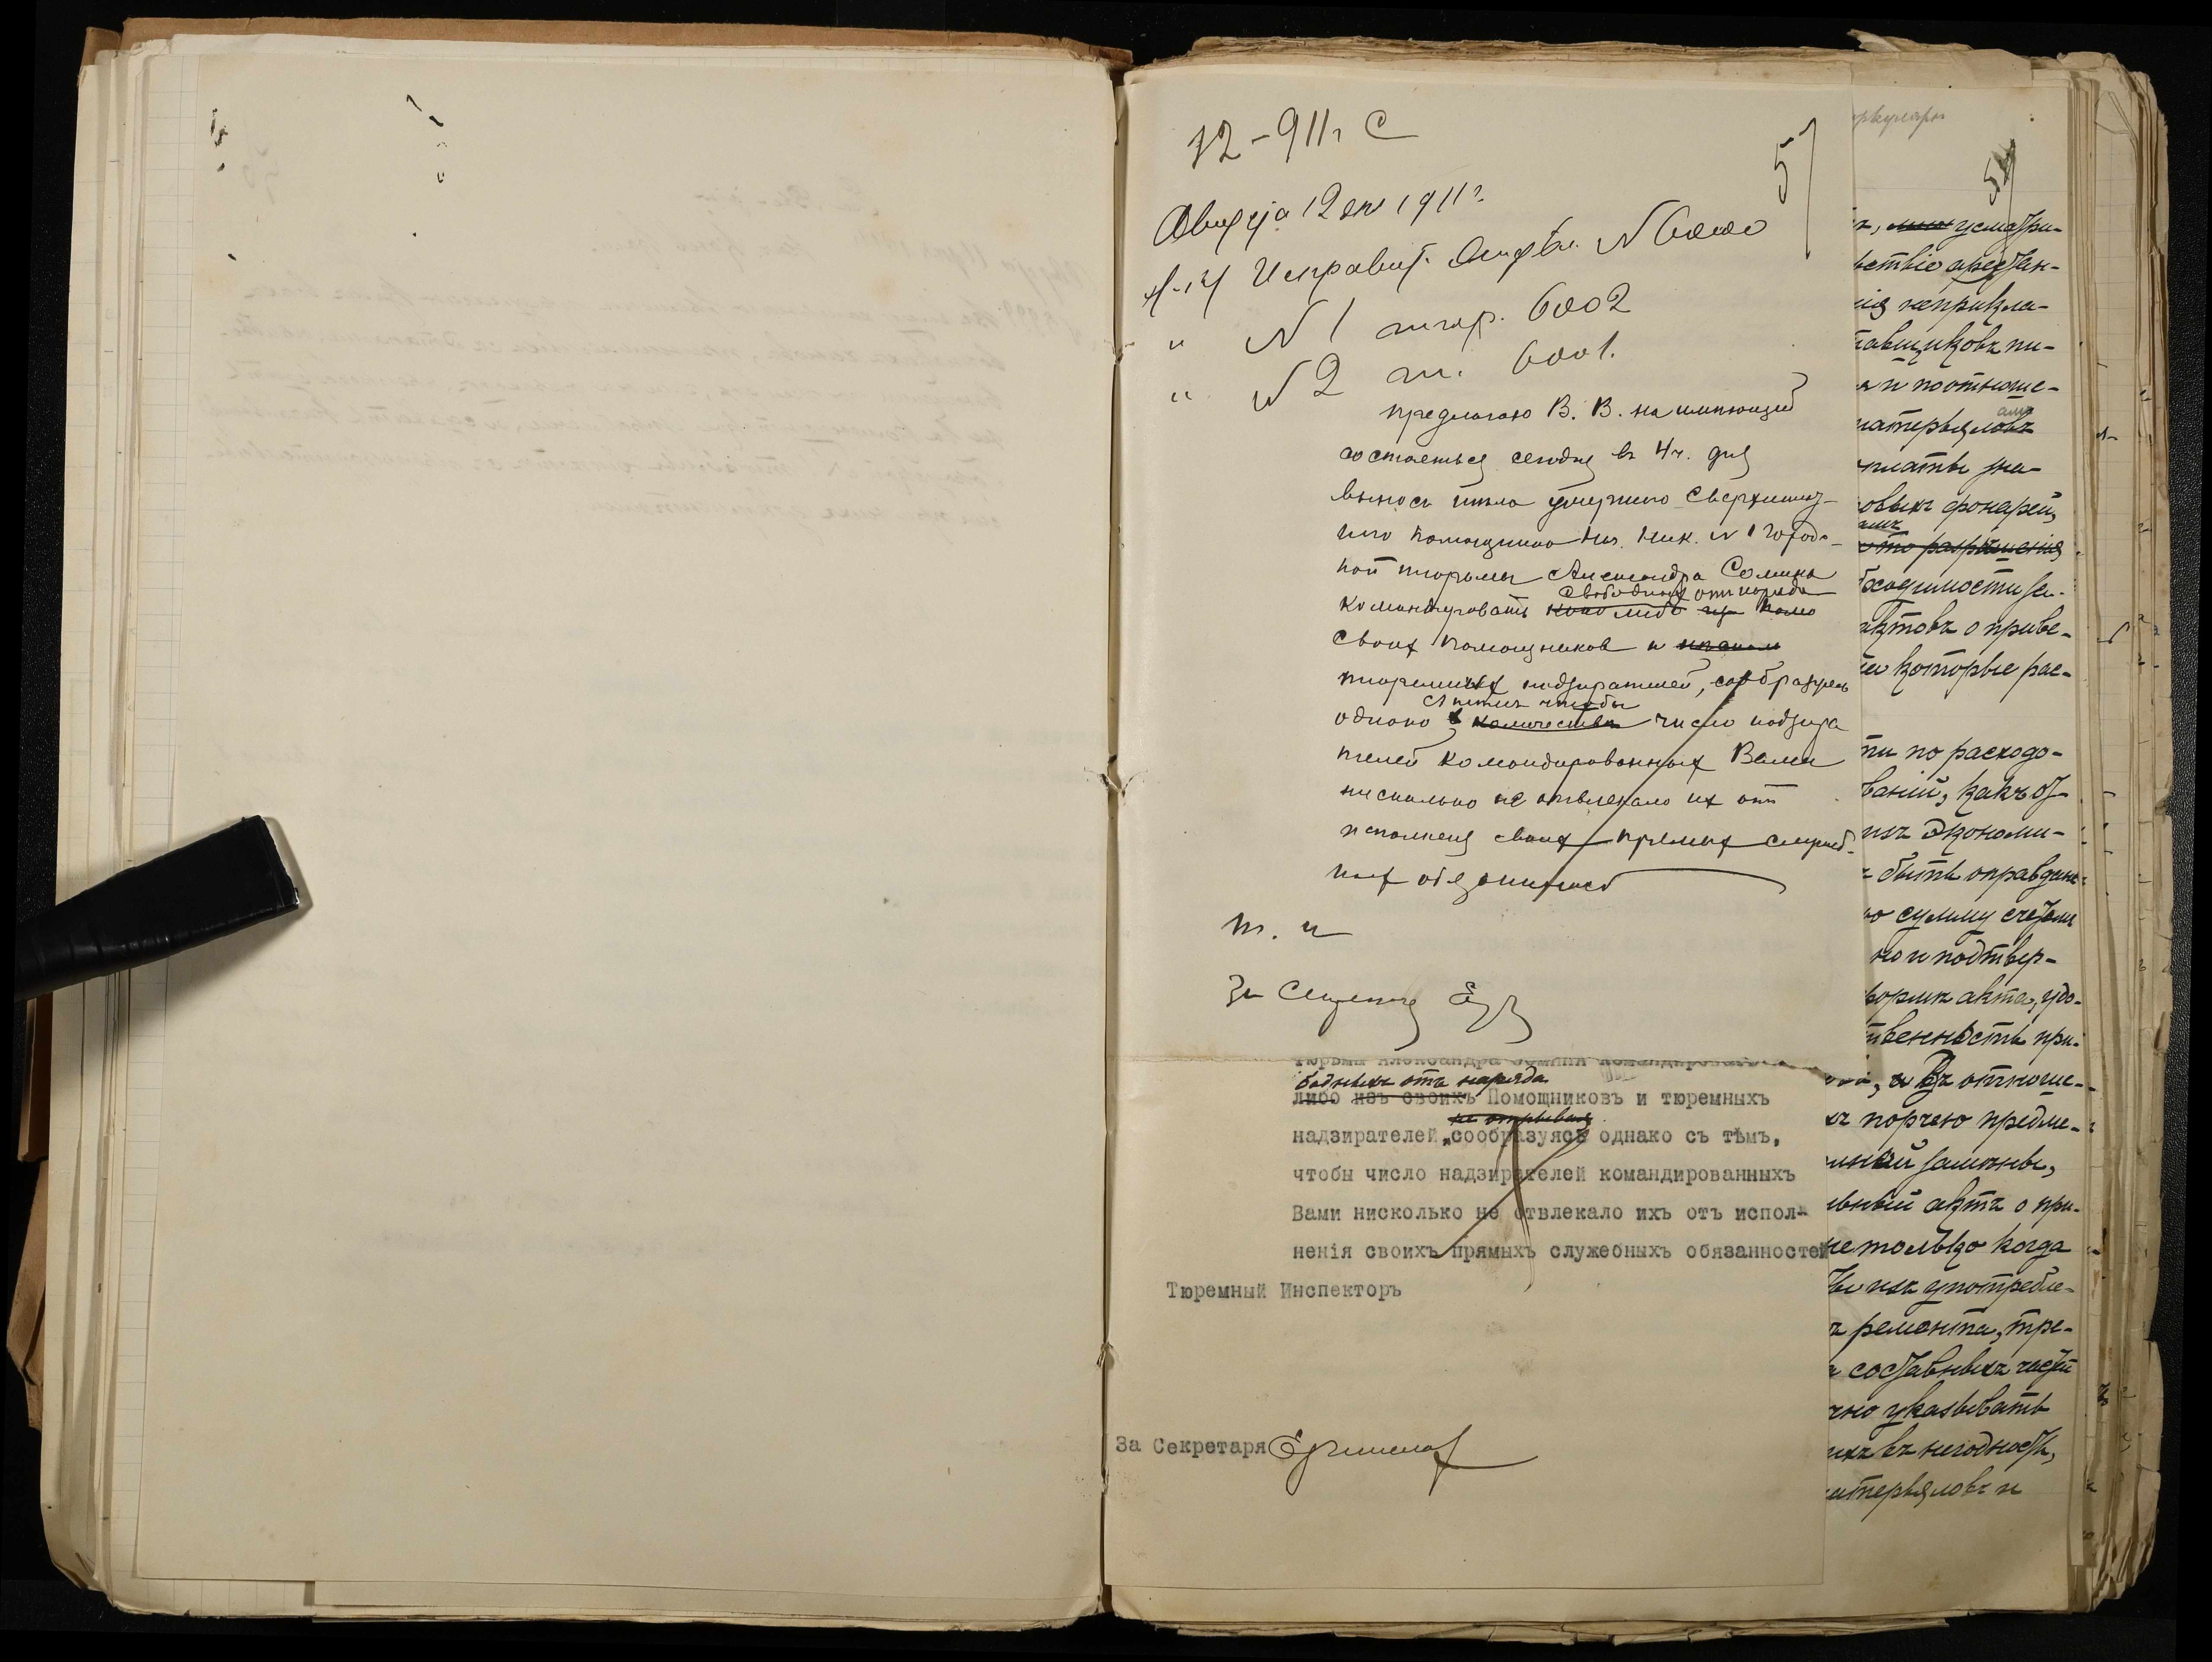 12-911 г С
57
Августа 12 дня 1911 г.
Н-ку Исправит. Отдѣл. N 6000
" N 1 тюр. 6002
" N 2 т. 6001.
предлагаю В. В. на имѣющій
состояться сегодня въ 4 ч. дня
выносъ тѣла умершаго сверхштат-
наго помощника На. ник. N 1 город-
ской тюрьмы Александра Семина
свободных от наряда
командировать кого либо из
своих помощников и
тюремных надзирателей, сообразуясь
с тѣмъ чтобы
однако в количества число надзира
телей командированных Вами
нисколько не отвлекало их от
исполнения своих прямых служеб-
ных обязанностей
Т. И
За Секретаря
тюрьмы Александра Семина командировать
бодныхъ отъ наряда
либо изъ своихъ Помощниковъ и тюремныхъ
не отрывая
надзирателей, сообразуясь однако съ тѣмъ,
чтобы число надзирателей командированныхъ
Вами нисколько не отвлекало ихъ отъ испол-
ненія своихъ прямыхъ служебныхъ обязанностей
Тюремный Инспекторъ
За Секретаря
54
усматри-
ствіе арестан-
ія неприкла-
авщиковъ пи-
и по отноше-
амъ
матерьяловъ
платы за-
овыхъ фонарей,
то разрѣшенія
бходимости за-
актовъ о приве-
которые рас-
ти по расходо-
ваній, какъ оз-
изъ экономи-
быть оправдан
ю сумму счетами
но и подтвер-
формѣ акта, удо-
твенность при-
въ отноше-
порчею предме-
замѣны,
ьный актъ о при-
не только когда
ихъ употребле-
ремонта, тре-
составныхъ частей
чно указывать
ихъ въ негодность,
атерьяловъ и